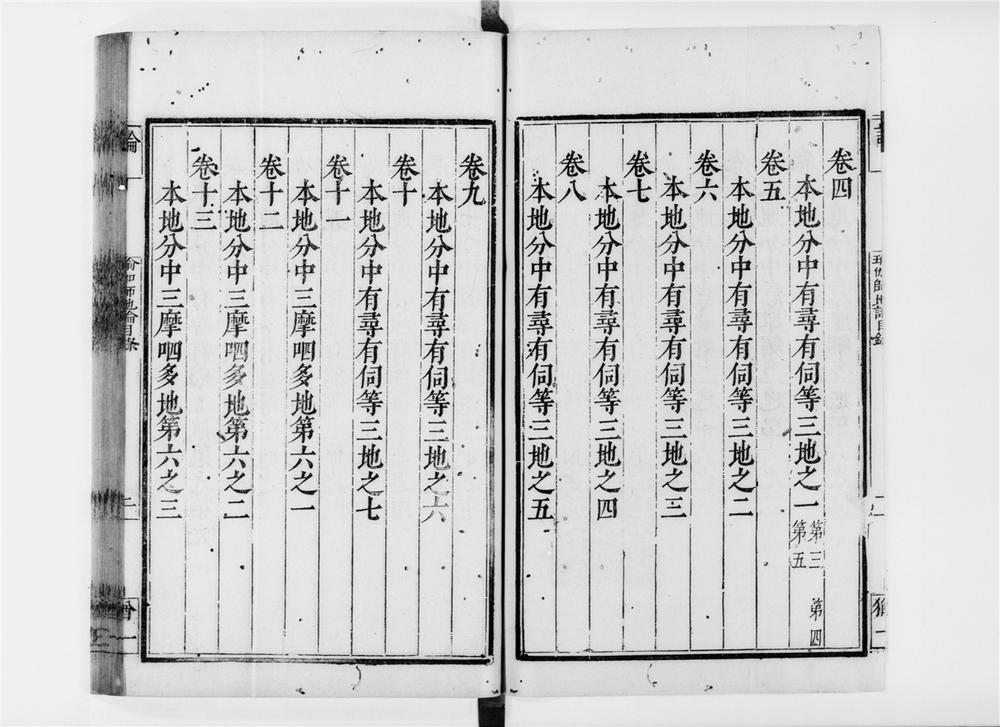 卷四
本地分中有尋有伺等三地之一 第三 第四 第五
卷五
本地分中有尋有伺等三地之二
卷六
本地分中有尋有伺等三地之三
卷七
本地分中有尋有伺等三地之四
卷八
本地分中有尋有伺等三地之五
卷九
本地分中有尋有伺等三地之六
卷十
本地分中有尋有伺等三地之七
卷十一
本地分中三摩呬多地第六之一
卷十二
本地分中三摩呬多地第六之二
卷十三
本地分中三摩呬多地第六之三